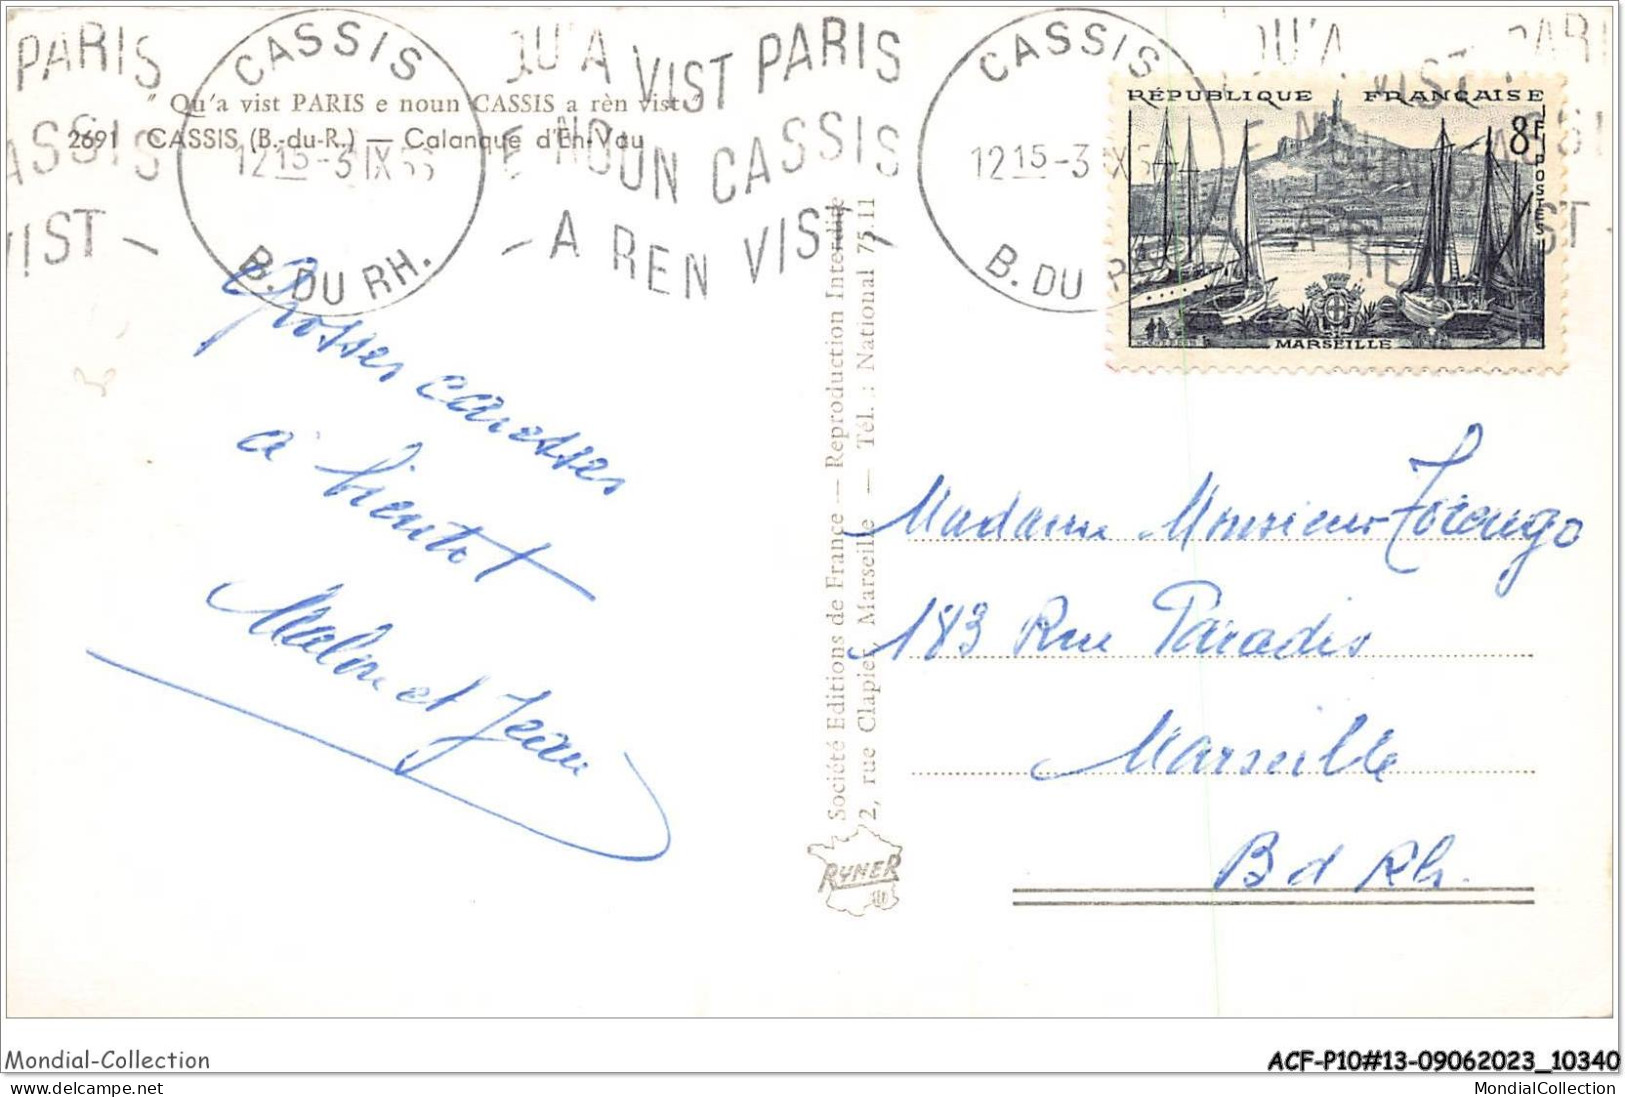 PARIS
CASSIS
VIST —
CASSIS
12 15 - 3 IX 55
B. DU RH.
QU'A VIST PARIS
E NOUN CASSIS
— A REN VIST —
CASSIS
12 15 - 3 IX 5
B. DU R
" Qu'a vist PARIS e noun CASSIS a rèn vist "
2691 CASSIS (B.-du-R.) — Calanque d'En-Vau
RÉPUBLIQUE FRANÇAISE
8F
POSTES
MARSEILLE
Grosses caresses
à bientot
et Jean
Société Editions de France — Reproduction Interdite
2, rue Clapier, Marseille — Tél. : National 75.11
RYNER
Madame Monsieur
183 Rue Paradis
Marseille
B d Rh.
Mondial-Collection
ACF-P10#13-09062023_10340
delcampe.net
MondialCollection